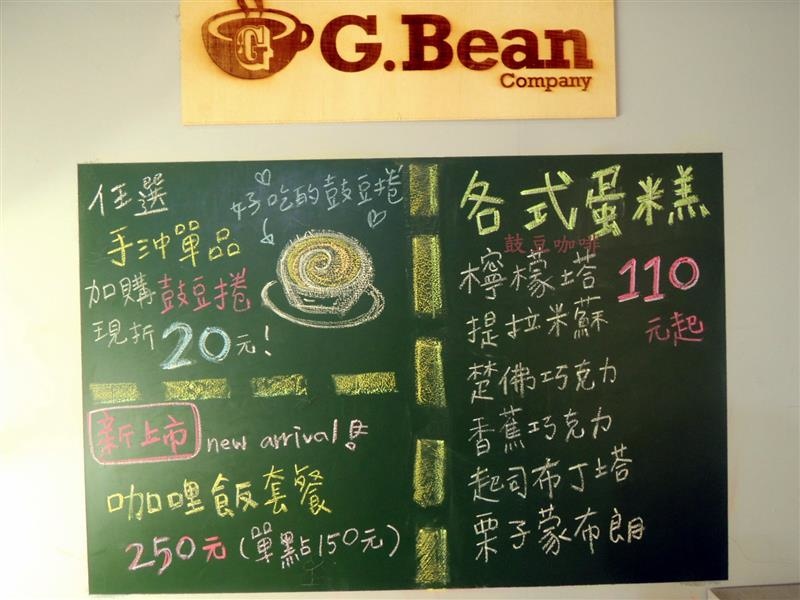 G
G.Bean
Company
任選
手沖單品
加購鼓豆捲
現折20元!
好吃的鼓豆捲
新上市 new arrival!
咖哩飯套餐
250元(單點150元)
各式蛋糕
鼓豆咖啡
110
元起
檸檬塔
提拉米蘇
梵佛巧克力
香蕉巧克力
起司布丁塔
栗子蒙布朗